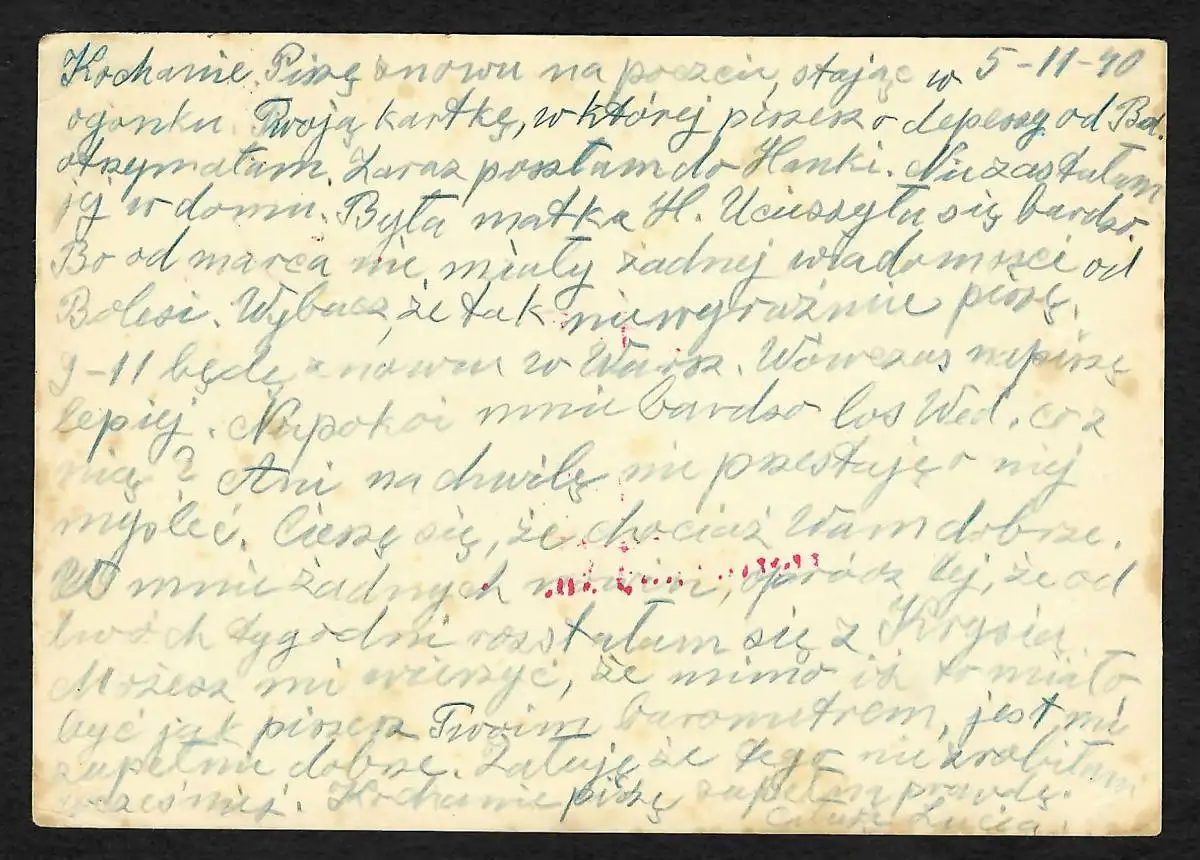 Kochanie. Piszę znowu na poczcie, stając w 5-11-40
ogonku. Twoją kartkę, w której piszesz o depeszy od Bol.
otrzymałam. Zaraz poszłam do Hanki. Nie zastałam
jej w domu. Była matka H. Ucieszyła się bardzo.
Bo od marca nie miały żadnej wiadomości od
Bolesi. Wybacz, że tak niewyraźnie piszę.
9-11 będę znowu w Warsz. Wówczas napiszę
lepiej. Niepokoi mnie bardzo los Wed. co z
nią? Ani na chwilę nie przestaję o niej
myśleć. Cieszę się, że chociaż Wam dobrze.
U mnie żadnych nowin, oprócz tej, że od
dwóch tygodni rozstałam się z Krysią.
Możesz mi wierzyć, że mimo iż to miało
być jak piszesz Twoim barometrem, jest mi
zupełnie dobrze. Żałuję że tego nie zrobiłam
wcześniej. Kochanie piszę zupełną prawdę.
Całuję Lucia.